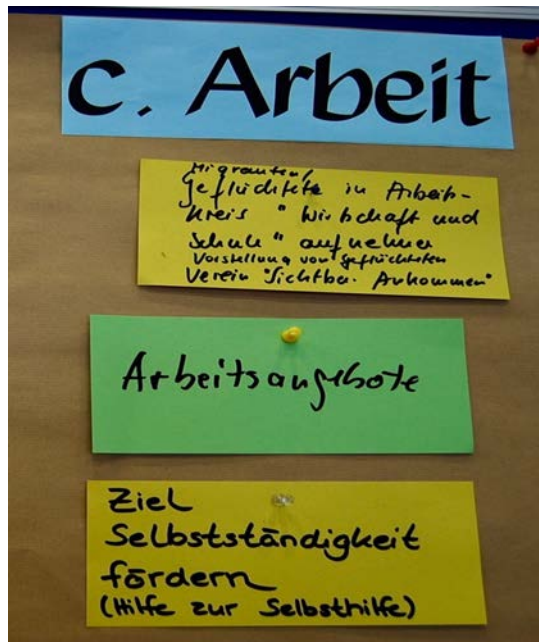 c. Arbeit
Migranten/
Geflüchtete in Arbeit-
kreis "Wirtschaft und
Schule" aufnehmen
Vorstellung von Geflüchteten
Verein "Sichtbar Ankommen"
Arbeitsangebote
Ziel
Selbstständigkeit
fördern
(Hilfe zur Selbsthilfe)